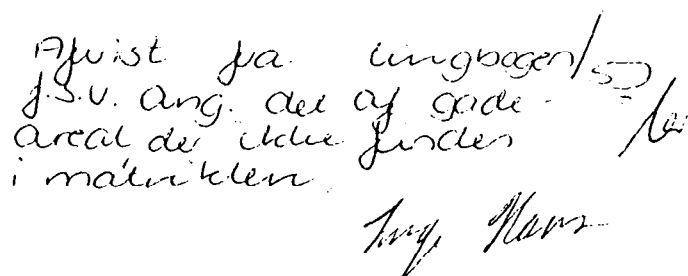 Afvist fra tingbogen/
f.s.v. ang. del af gade-
areal der ikke findes
i matriklen